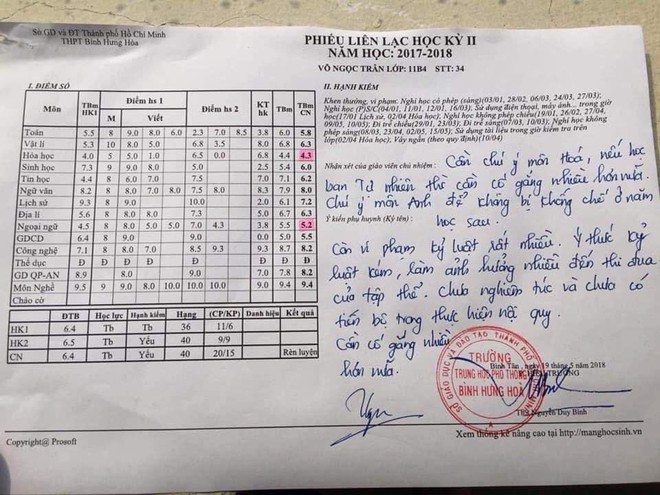 Sở GD và ĐT Thành phố Hồ Chí Minh
THPT Bình Hưng Hòa
PHIẾU LIÊN LẠC HỌC KỲ II
NĂM HỌC: 2017-2018
VÕ NGỌC TRÂN LỚP: 11B4 STT: 34
I. ĐIỂM SỐ
Môn TBm HK1 Điểm hs 1 Điểm hs 2 KT hk TBm TBm CN
M Viết
Toán 5.5 8 9.0 8.0 6.0 2.3 7.0 8.5 3.8 6.0 5.8
Vật lí 5.3 10 8.0 5.0 6.8 3.5 8.0 6.8 6.3
Hóa học 4.0 5 5.0 1.0 6.5 0.0 6.8 4.4 4.3
Sinh học 7.3 9 9.0 8.0 5.0 2.5 5.4 6.0
Tin học 4.4 8 7.0 7.5 7.5 7.1 6.2
Ngữ văn 8.2 8 8.0 7.0 8.0 7.5 8.0 8.3 7.9 8.0
Lịch sử 9.3 8 9.0 10.0 2.0 6.1 7.2
Địa lí 5.6 8 8.0 8.0 7.3 5.0 6.7 6.3
Ngoại ngữ 4.5 8 8.0 5.0 5.0 7.0 4.3 3.8 5.5 5.2
GDCD 6.4 9.0 9.0 0.0 5.0 5.5
Công nghệ 7.1 8 8.0 7.0 8.5 9.3 9.3 8.7 8.2
Thể dục Đ Đ Đ Đ Đ Đ
GD QP-AN 8.9 8.0 9.0 7.0 7.8 8.2
Môn Nghề 9.5 9 9.0 8.0 10.0 10.0 10.0 9.0 9.4 9.4
Chào cờ
ĐTB Học lực Hạnh kiểm Hạng (CP/KP) Danh hiệu Kết quả
HK1 6.4 Tb Tb 36 11/6
HK2 6.5 Tb Yếu 40 9/9
CN 6.4 Tb Yếu 40 20/15 Rèn luyện
Copyright@ Prosoft
II. HẠNH KIỂM
Khen thưởng, vi phạm: Nghỉ học có phép (sáng)(03/01, 28/02, 06/03, 24/03, 27/03);
Nghỉ học (P)S/C(04/01, 11/01, 12/01, 16/03); Sử dụng điện thoại, máy ảnh... trong giờ
học(17/01 Lịch sử, 02/04 Hóa học); Nghỉ học không phép chiều(19/01, 26/02, 27/04,
09/05, 10/05); Đi trễ chiều(19/01, 23/01, 12/03); Đi trễ sáng(07/03, 10/03); Nghỉ học không
phép sáng(08/03, 23/04, 02/05, 15/05); Sử dụng tài liệu trong giờ kiểm tra trên
lớp(02/04 Hóa học). Váy ngắn (theo quy định)(10/04)
Nhận xét của giáo viên chủ nhiệm: Cần chú ý môn Hoá, nếu học
ban Tự nhiên thì cần cố gắng nhiều hơn nữa.
Chú ý môn Anh để không bị khống chế ở năm
Ý kiến phụ huynh (Ký tên): học sau.
Còn vi phạm kỷ luật rất nhiều. Ý thức kỷ
luật kém, làm ảnh hưởng nhiều đến thi đua
của tập thể. Chưa nghiêm túc và chưa có
tiến bộ trong thực hiện nội quy.
Cần cố gắng nhiều
hơn nữa.
Bình Tân, ngày 19 tháng 5 năm 2018
HIỆU TRƯỞNG
SỞ GIÁO DỤC VÀ ĐÀO TẠO THÀNH PHỐ
TRƯỜNG
TRUNG HỌC PHỔ THÔNG
BÌNH HƯNG HOÀ
ThS Nguyễn Duy Bình
Xem thống kê nâng cao tại http://manghocsinh.vn